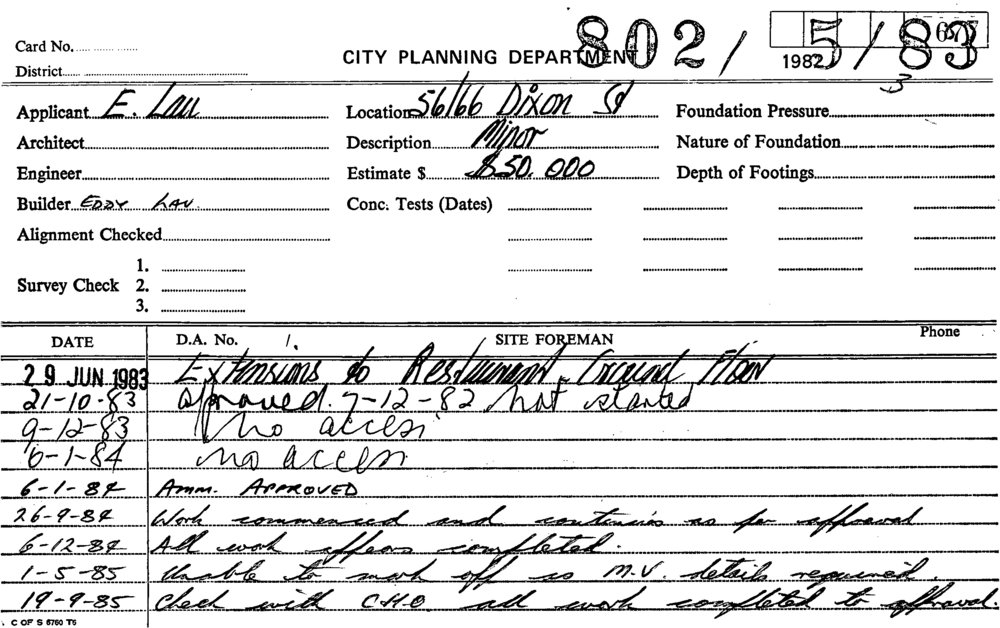 Card No.
CITY PLANNING DEPARTMENT
802/5/83
1982
3
District
Applicant E. Lau
Location 56/66 Dixon St
Foundation Pressure
Architect
Description Minor
Nature of Foundation
Engineer
Estimate $ $50,000
Depth of Footings
Builder EDDY LAU.
Conc. Tests (Dates)
Alignment Checked
Survey Check
1.
2.
3.
DATE
D.A. No.
SITE FOREMAN
Phone
29 JUN 1983 Extensions to Restaurant Ground Floor
21-10-83 approved. 7-12-82 not started
9-12-83 no access
6-1-84 no access
6-1-84 AMM. APPROVED
26-9-84 Work commenced and continuing as per approval
6-12-84 All work appears completed.
1-5-85 Unable to mark off as M.V. details required.
19-9-85 Check with C.H.O. all work completed to approval.
C OF S 5760 T5